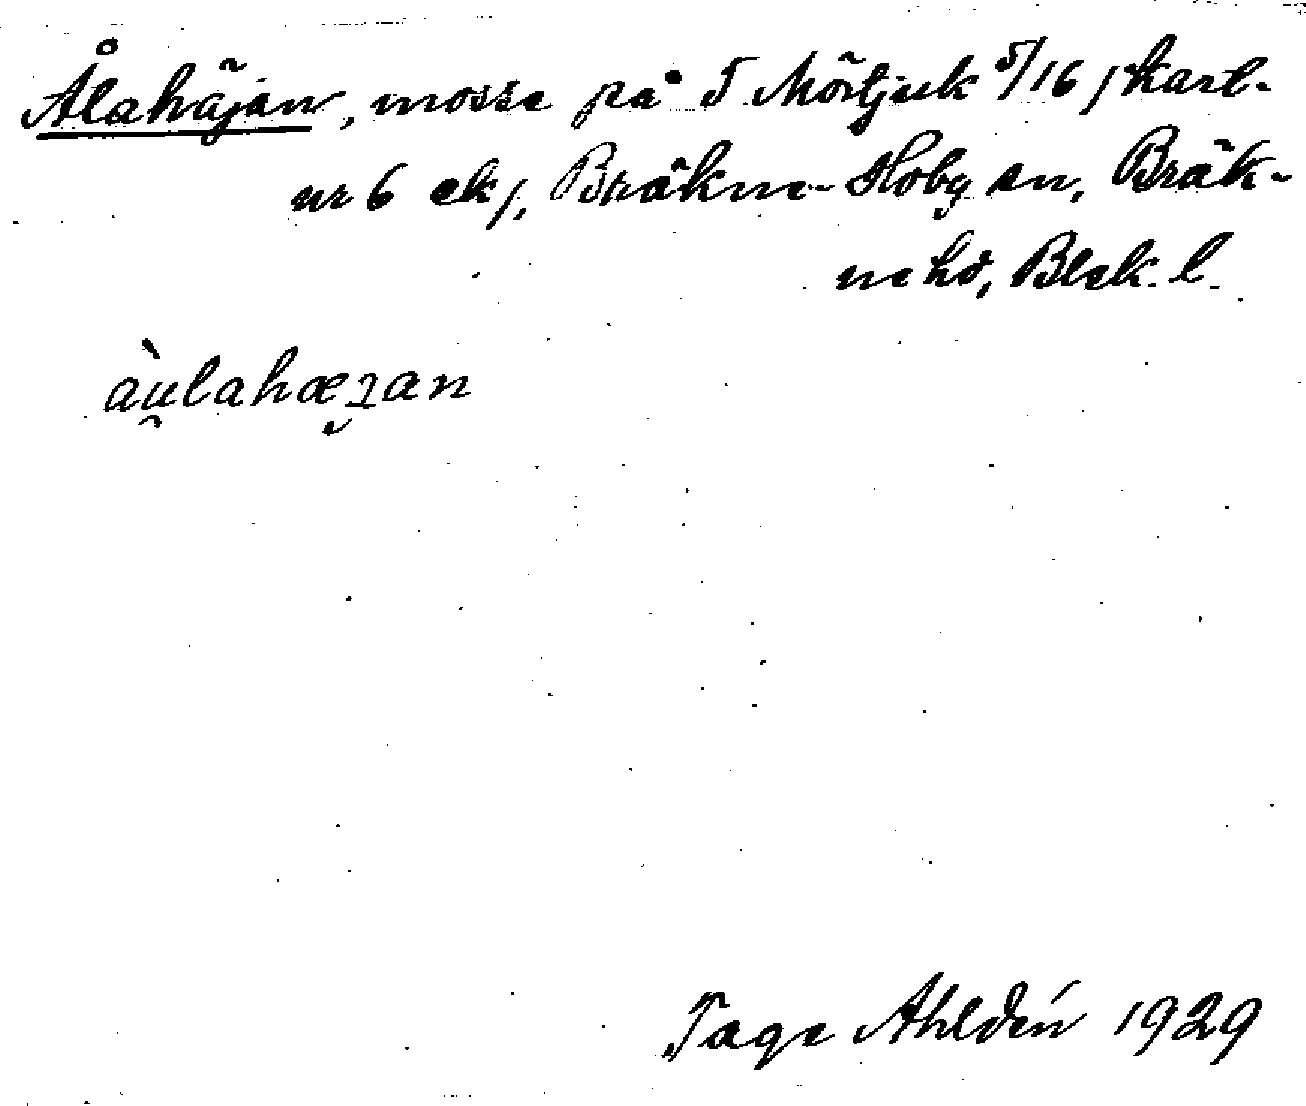 Ålahäjan, mosse på 5 Mörtjuk 5/16 /kart-
nr 6 ek/, Bräkne-Hoby sn, Bräk-
ne hd, Blek. l.
àu̯lahæɪ̯an
Tage Ahldén 1929